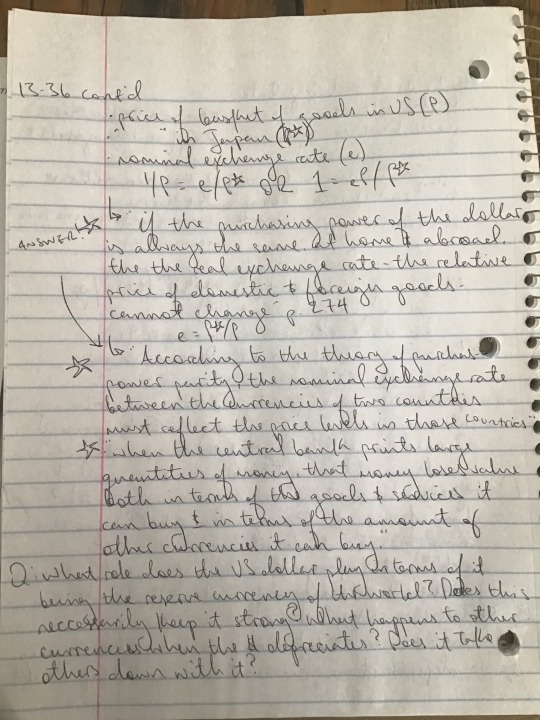 13-36 cont'd
· price of basket of goods in US (P)
· " in Japan (P☆)
· nominal exchange rate (e)
1/P = e/P☆ OR 1 = eP/P☆
ANSWER: ☆ ↳ "if the purchasing power of the dollar
is always the same at home & abroad,
the the real exchange rate - the relative
price of domestic & foreign goods -
cannot change" p. 274
e = P☆/P
☆ ↳ "According to the theory of purchas
power parity, the nominal exchange rate
between the currencies of two countries
must reflect the price levels in those countries"
☆ "when the central bank prints large
quantities of money, that money loses value
both in terms of the goods & services it
can buy & in terms of the amount of
other currencies it can buy."
Q: what role does the US dollar play in terms of it
being the reserve currency of the world? Does this
neccessarily keep it strong? What happens to other
currencies when the $ depreciates? Does it take
others down with it?